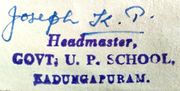 Joseph K. P.
Headmaster,
GOVT; U. P. SCHOOL,
KADUNGAPURAM.